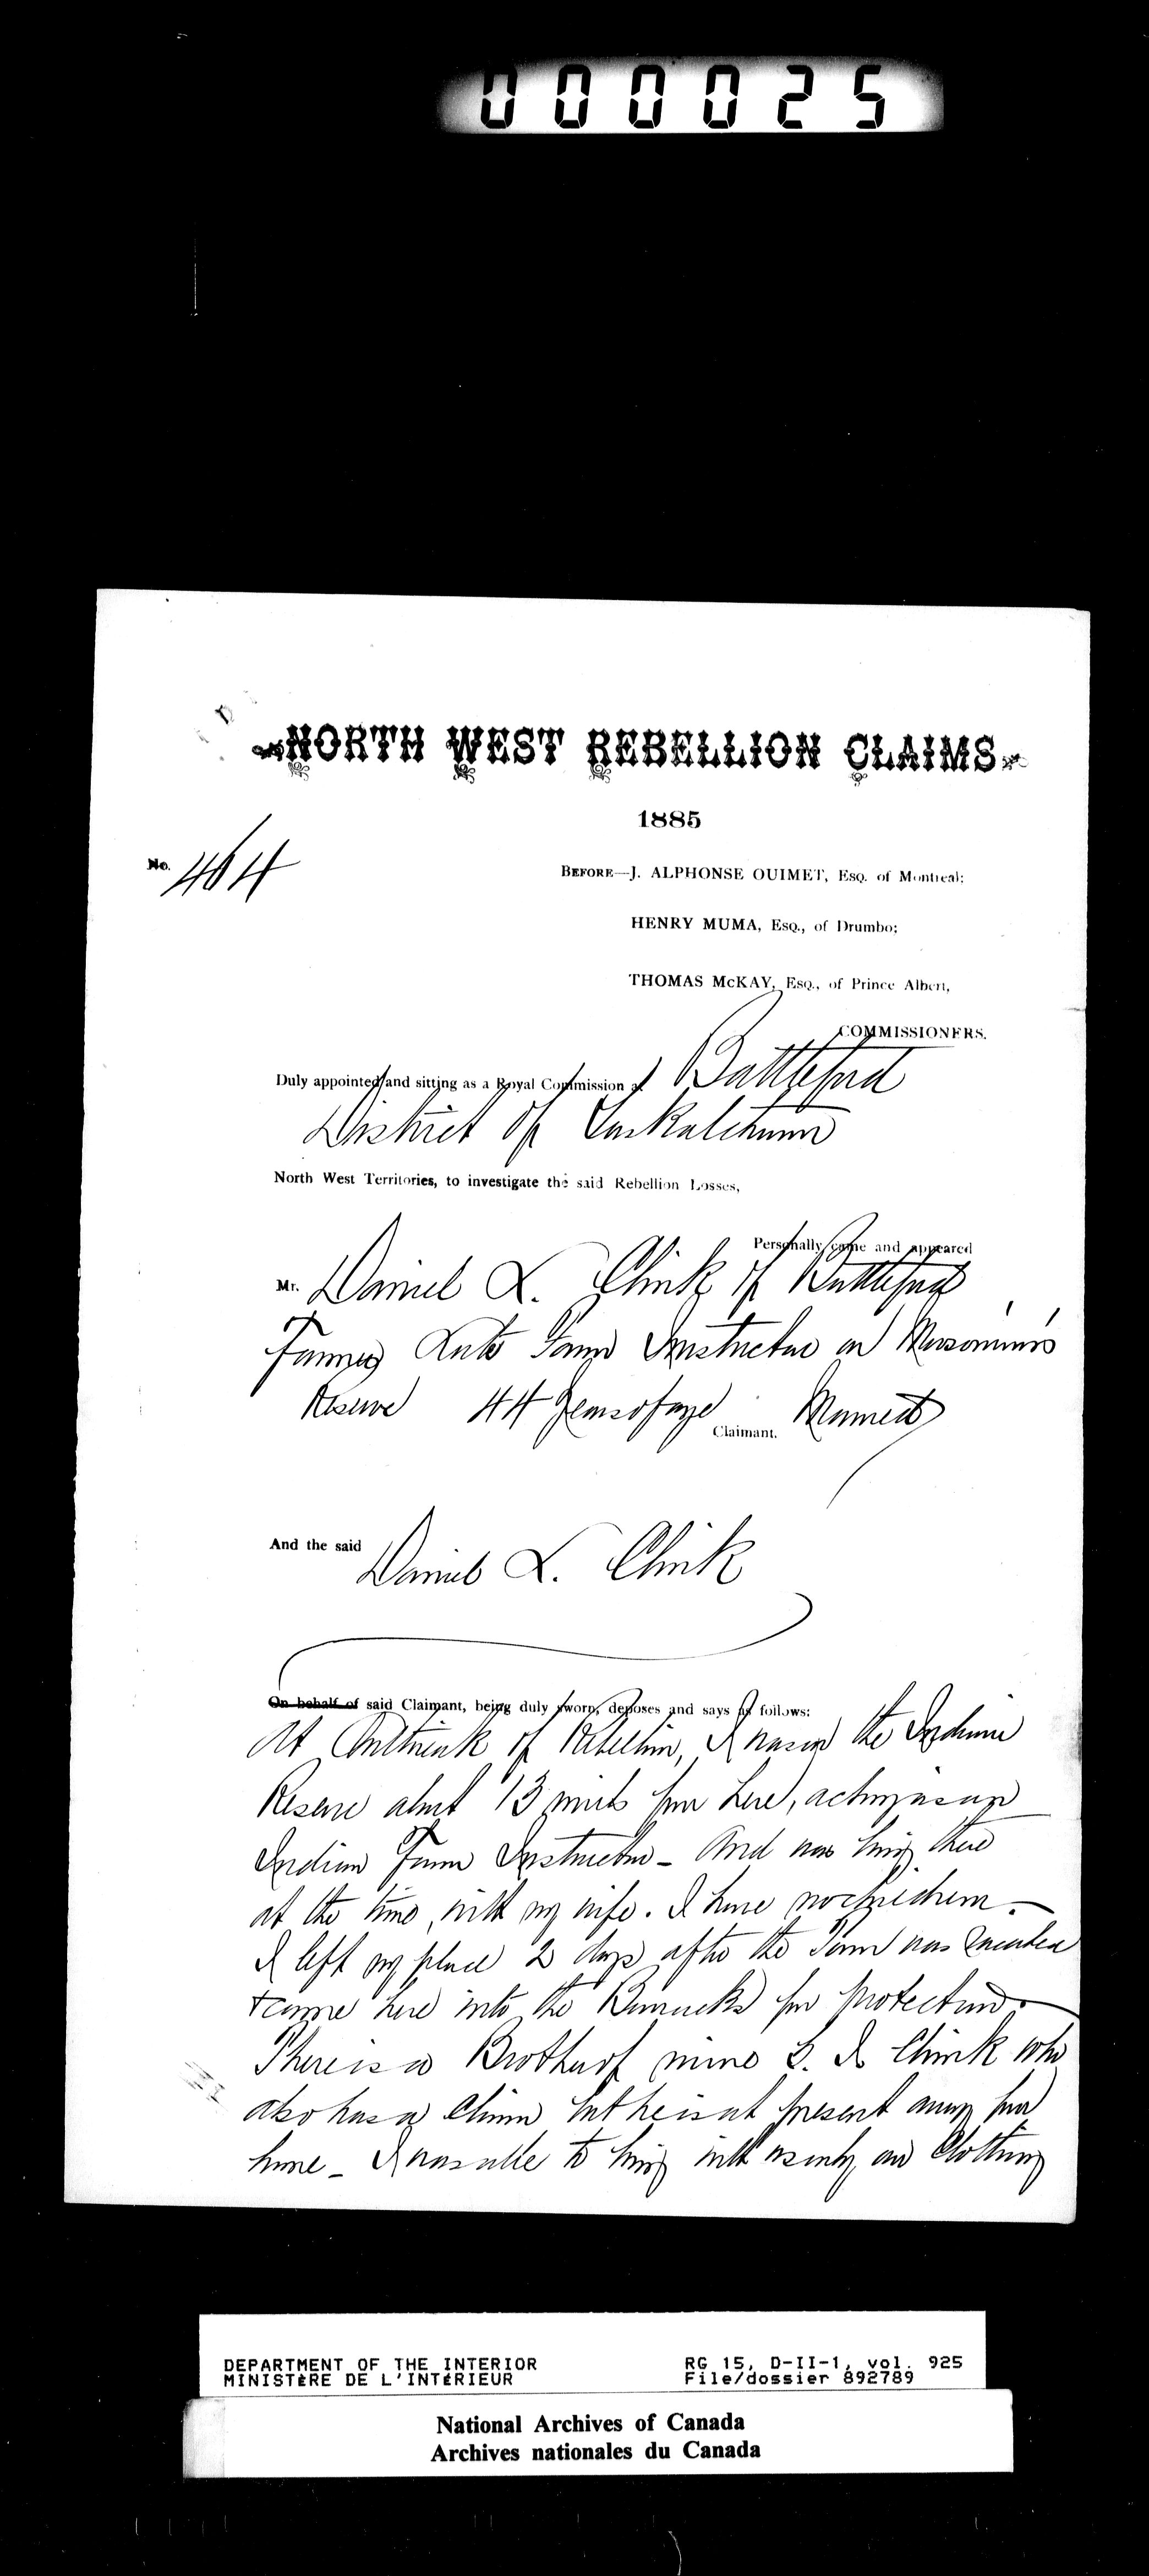 000025
NORTH WEST REBELLION CLAIMS
1885
No. 464
BEFORE—J. ALPHONSE OUIMET, Esq. of Montreal;
HENRY MUMA, Esq., of Drumbo;
THOMAS McKAY, Esq., of Prince Albert,
COMMISSIONERS.
Duly appointed and sitting as a Royal Commission at Battleford
District of Saskatchewan
North West Territories, to investigate the said Rebellion Losses,
Personally came and appeared
Mr. Daniel L. Clink of Battleford
Farmer Late Farm Instructor on Moosomin's
Reserve 44 Years of age Claimant. Married
And the said Daniel L. Clink
On behalf of said Claimant, being duly sworn, deposes and says as follows:
At Outbreak of Rebellion, I was on the Indian
Reserve about 13 miles from here, acting as an
Indian Farm Instructor - And was living there
at the time, with my wife. I have no children -
I left my place 2 days after the Town was vacated
+ came here into the Barracks for protection.
There is a Brother of mine S. L. Clink who
also has a Claim but he is at present away from
home - I was able to bring with us only our Clothing
DEPARTMENT OF THE INTERIOR
MINISTÈRE DE L'INTÉRIEUR
RG 15, D-II-1, vol. 925
File/dossier 892789
National Archives of Canada
Archives nationales du Canada